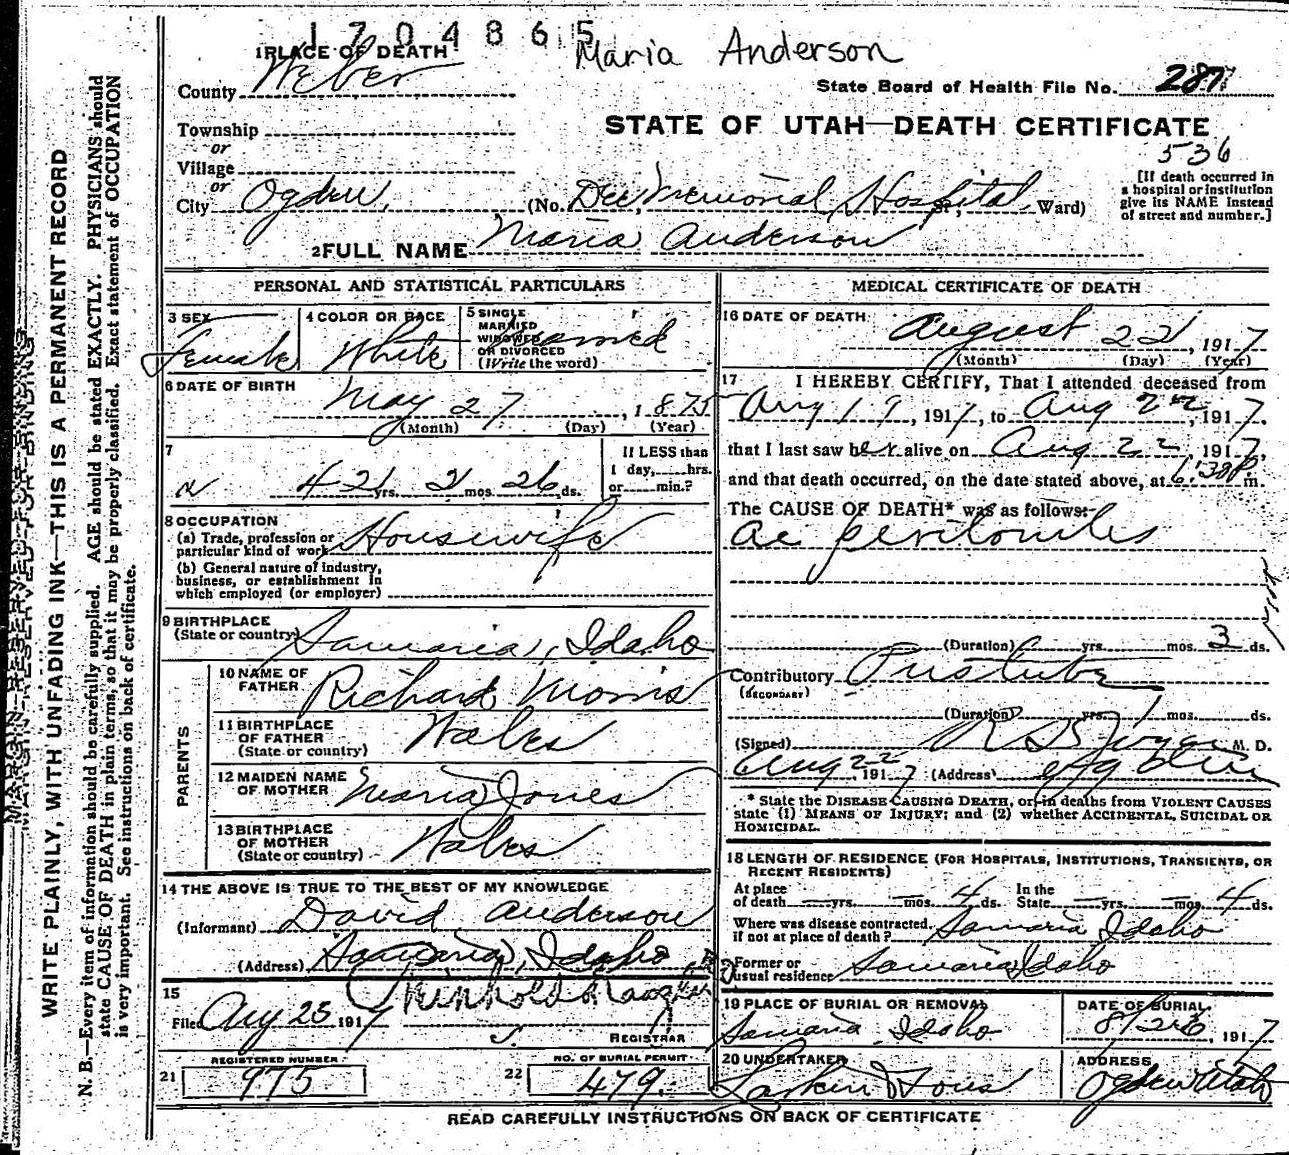 1704865
Maria Anderson
1 PLACE OF DEATH
County Weber
State Board of Health File No. 287
Township
or
Village
or
City Ogden, (No. Dee Memorial Hospital St., Ward)
STATE OF UTAH—DEATH CERTIFICATE
536
[If death occurred in
a hospital or institution
give its NAME instead
of street and number.]
2 FULL NAME Maria Anderson
PERSONAL AND STATISTICAL PARTICULARS
3 SEX
Female
4 COLOR OR RACE
White
5 SINGLE
MARRIED
WIDOWED
OR DIVORCED
(Write the word)
Married
6 DATE OF BIRTH
May 27, 1875
(Month) (Day) (Year)
7
42 yrs. 2 mos. 26 ds.
If LESS than
1 day, hrs.
or min.?
8 OCCUPATION
(a) Trade, profession or
particular kind of work Housewife
(b) General nature of industry,
business, or establishment in
which employed (or employer)
9 BIRTHPLACE
(State or country) Samaria, Idaho
PARENTS
10 NAME OF
FATHER Richard Morris
11 BIRTHPLACE
OF FATHER
(State or country) Wales
12 MAIDEN NAME
OF MOTHER Maria Jones
13 BIRTHPLACE
OF MOTHER
(State or country) Wales
14 THE ABOVE IS TRUE TO THE BEST OF MY KNOWLEDGE
(Informant) David Anderson
(Address) Samaria, Idaho
15
Filed Aug 25 1917
REGISTRAR
REGISTERED NUMBER
21 975
NO. OF BURIAL PERMIT
22 479.
MEDICAL CERTIFICATE OF DEATH
16 DATE OF DEATH
August 22, 1917
(Month) (Day) (Year)
17 I HEREBY CERTIFY, That I attended deceased from
Aug 19, 1917, to Aug 22, 1917.
that I last saw her alive on Aug 22, 1917,
and that death occurred, on the date stated above, at 6:30 P. m.
The CAUSE OF DEATH* was as follows:
Ac peritonites
(Duration) yrs. mos. 3 ds.
Contributory
(SECONDARY)
(Duration) yrs. mos. ds.
(Signed) M. D.
Aug 22, 1917 (Address) Ogden
* State the DISEASE CAUSING DEATH, or in deaths from VIOLENT CAUSES
state (1) MEANS OF INJURY; and (2) whether ACCIDENTAL, SUICIDAL OR
HOMICIDAL.
18 LENGTH OF RESIDENCE (FOR HOSPITALS, INSTITUTIONS, TRANSIENTS, OR
RECENT RESIDENTS)
At place
of death — yrs. — mos. 4 ds.
In the
State — yrs. — mos. 4 ds.
Where was disease contracted
if not at place of death? Samaria Idaho
Former or
usual residence Samaria Idaho
19 PLACE OF BURIAL OR REMOVAL
Samaria Idaho
DATE OF BURIAL
8/26, 1917
20 UNDERTAKER
Larkin & Sons
ADDRESS
Ogden Utah
READ CAREFULLY INSTRUCTIONS ON BACK OF CERTIFICATE
MARGIN RESERVED FOR BINDING
WRITE PLAINLY, WITH UNFADING INK—THIS IS A PERMANENT RECORD
N. B.—Every item of information should be carefully supplied. AGE should be stated EXACTLY. PHYSICIANS should
state CAUSE OF DEATH in plain terms, so that it may be properly classified. Exact statement of OCCUPATION
is very important. See instructions on back of certificate.